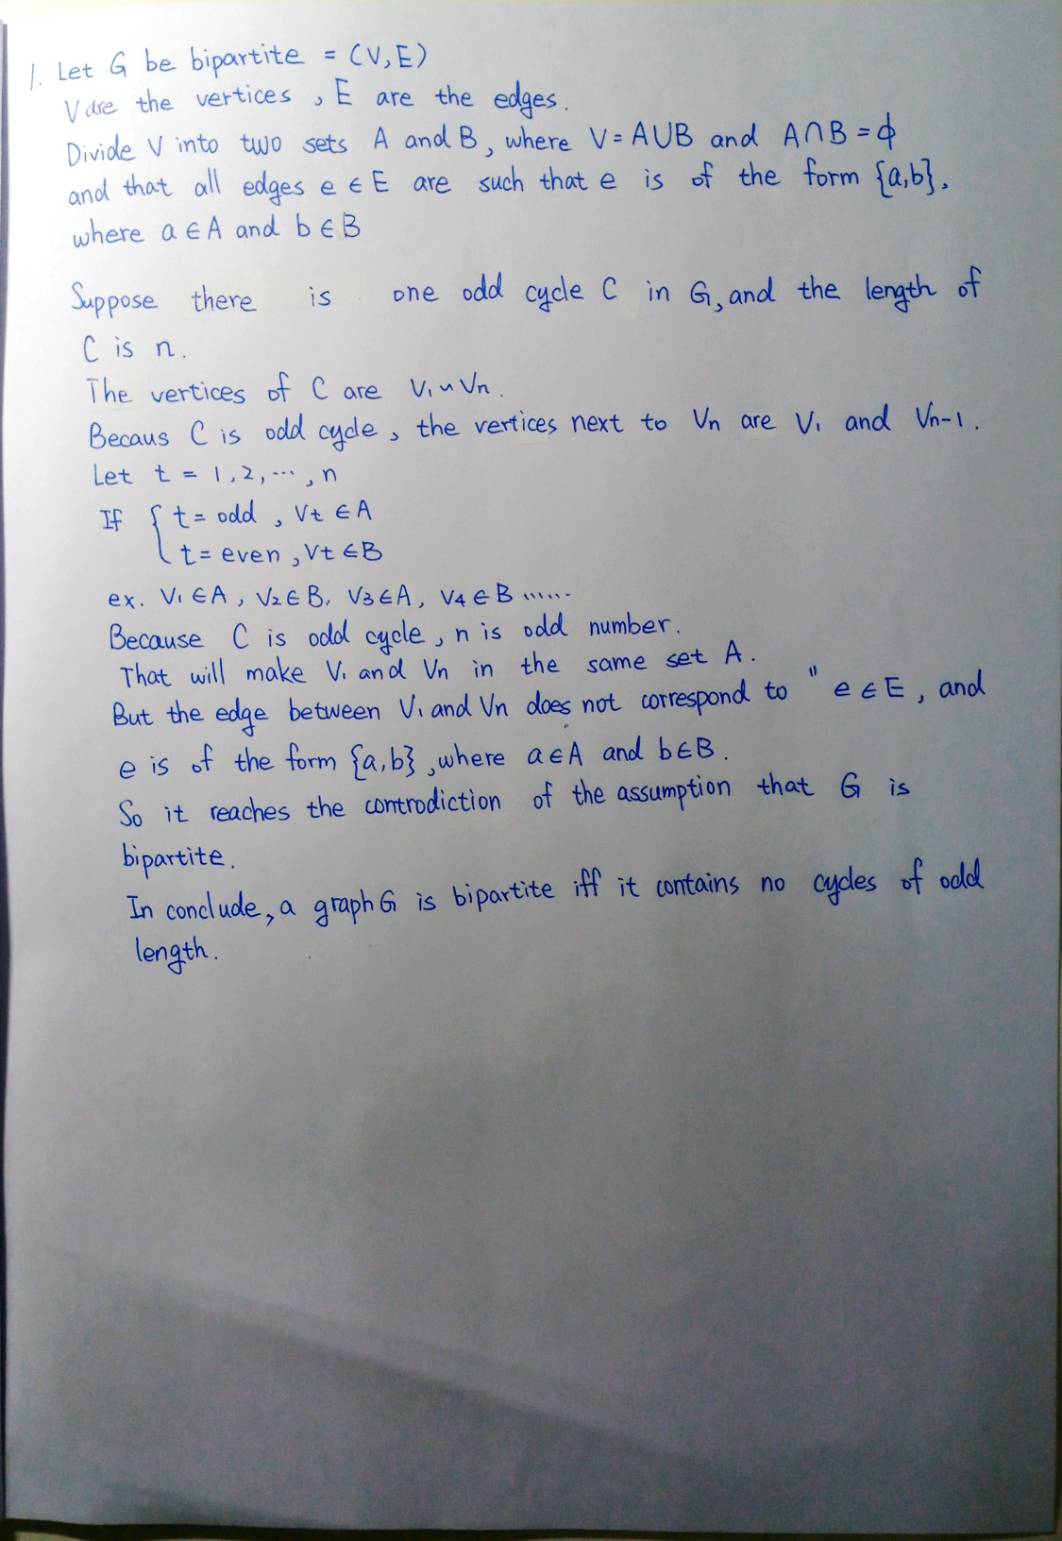 1. Let G be bipartite = (V,E)
V are the vertices , E are the edges.
Divide V into two sets A and B, where V=A∪B and A∩B=ϕ
and that all edges e ∈ E are such that e is of the form {a,b},
where a∈A and b∈B
Suppose there is one odd cycle C in G, and the length of
C is n.
The vertices of C are V₁~Vn.
Becaus C is odd cycle, the vertices next to Vn are V₁ and Vn-1.
Let t = 1,2,⋯,n
If { t = odd , Vt ∈A
t = even , Vt ∈B
ex. V₁∈A, V₂∈B, V₃∈A, V₄∈B ......
Because C is odd cycle, n is odd number.
That will make V₁ and Vn in the same set A.
But the edge between V₁ and Vn does not correspond to " e∈E, and
e is of the form {a,b}, where a∈A and b∈B.
So it reaches the controdiction of the assumption that G is
bipartite.
In conclude, a graph G is bipartite iff it contains no cycles of odd
length.